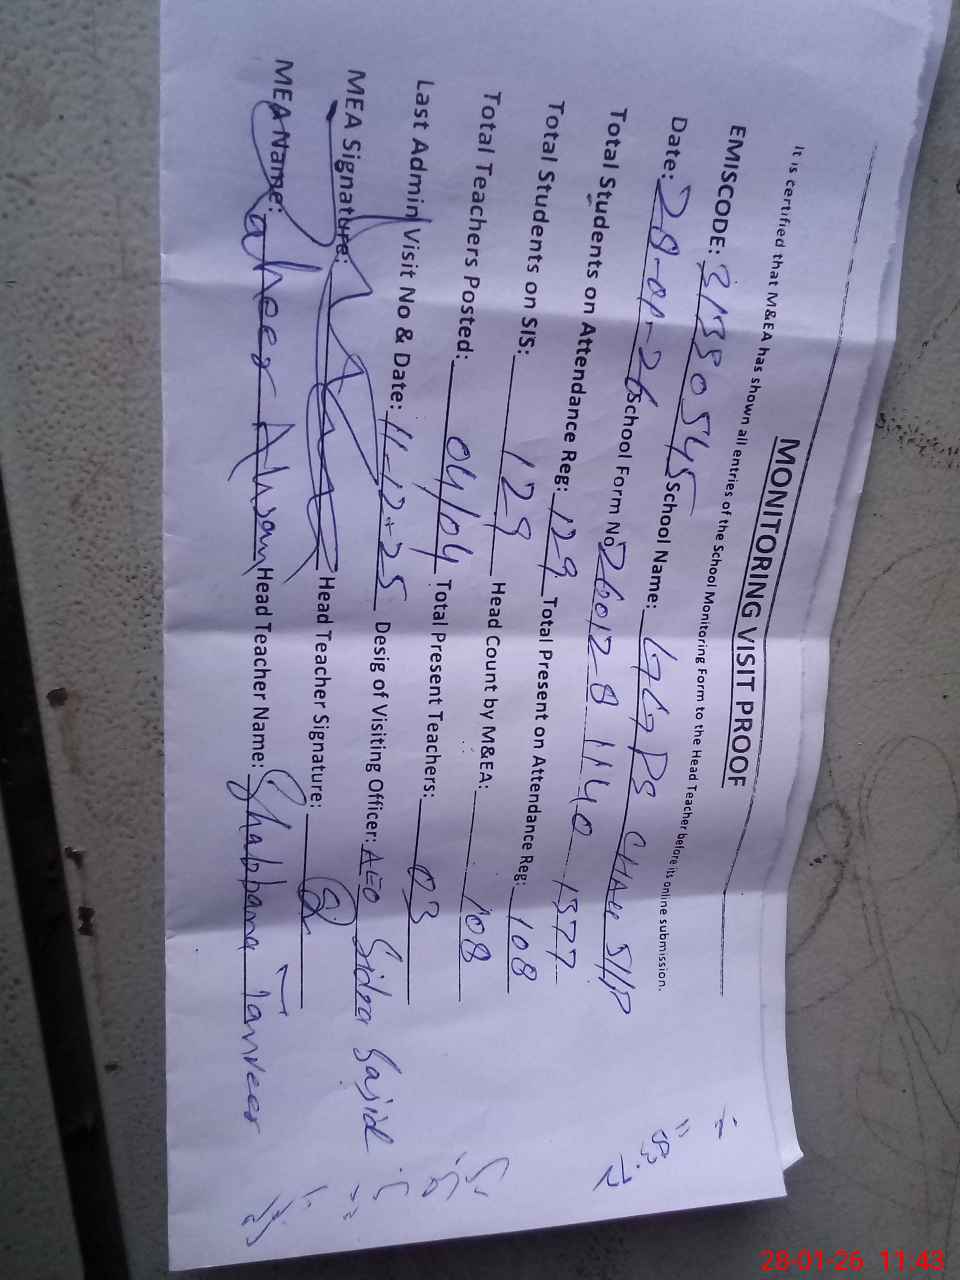 MONITORING VISIT PROOF
It is certified that M&EA has shown all entries of the School Monitoring Form to the Head Teacher before its online submission.
EMISCODE: 31380545 School Name: GGPS CHAH SHP
Date: 28-01-26 School Form No 26012811401377
Total Students on Attendance Reg: 129 Total Present on Attendance Reg: 108
Total Students on SIS: 129 Head Count by M&EA: 108
Total Teachers Posted: 04/04 Total Present Teachers: 03
Last Admin Visit No & Date: 11-12-25 Desig of Visiting Officer: AEO Sidra Sajid
MEA Signature: Head Teacher Signature:
MEA Name: Zaheer Ahsan Head Teacher Name: Shabbana Tanveer
83.72
28-01-26 11:43